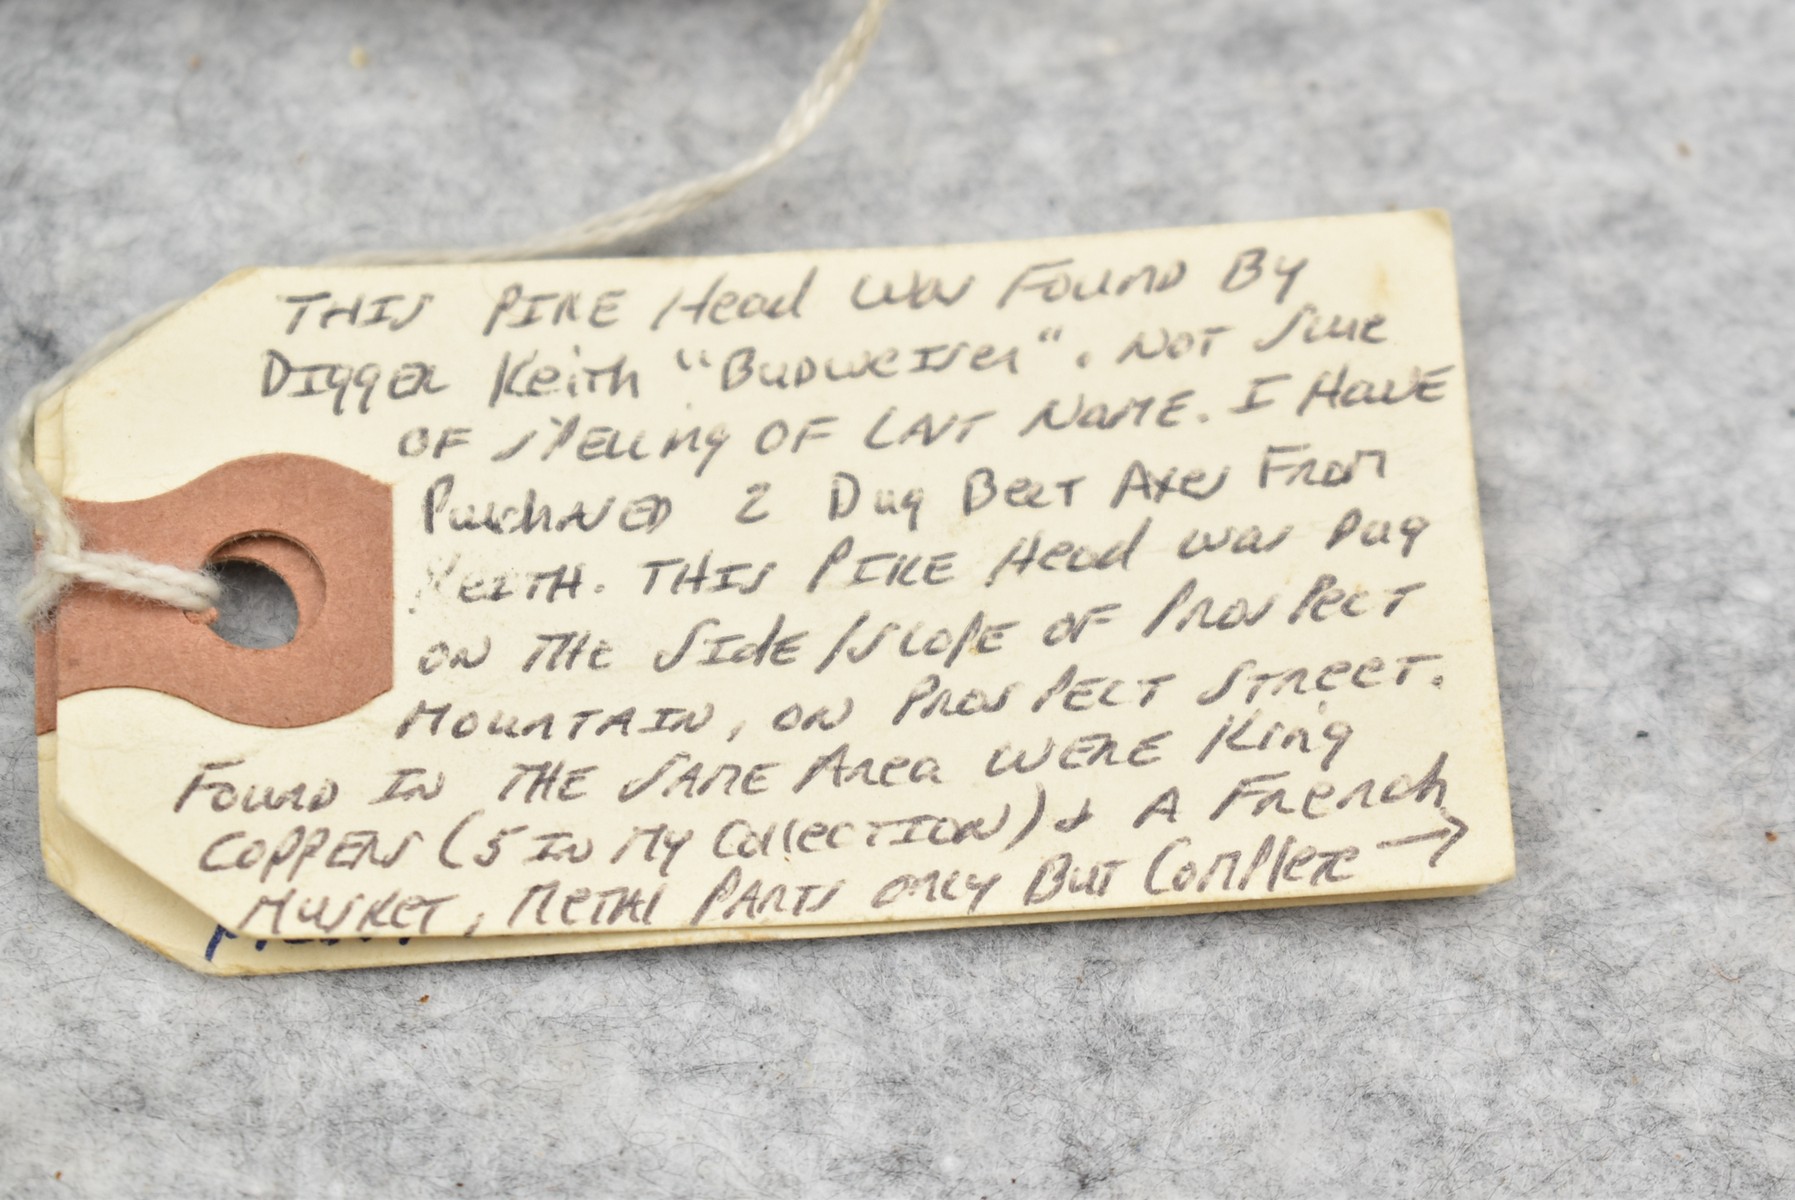 THIS PIKE Head Was Found By
Digger Keith "Budweiser". Not Sure
OF SPELLing OF LAST NAME. I HAVE
Purchased 2 Dug BELT Axes From
KEITH. THIS PIKE Head was Dug
ON THE SIDE/SLOPE OF PROSPECT
MOUNTAIN, ON PROSPECT STREET.
Found IN THE SAME Area WERE King
COPPERS (5 IN My Collection) & A French
MUSKET, METAL PARTS ONLY But Complete →